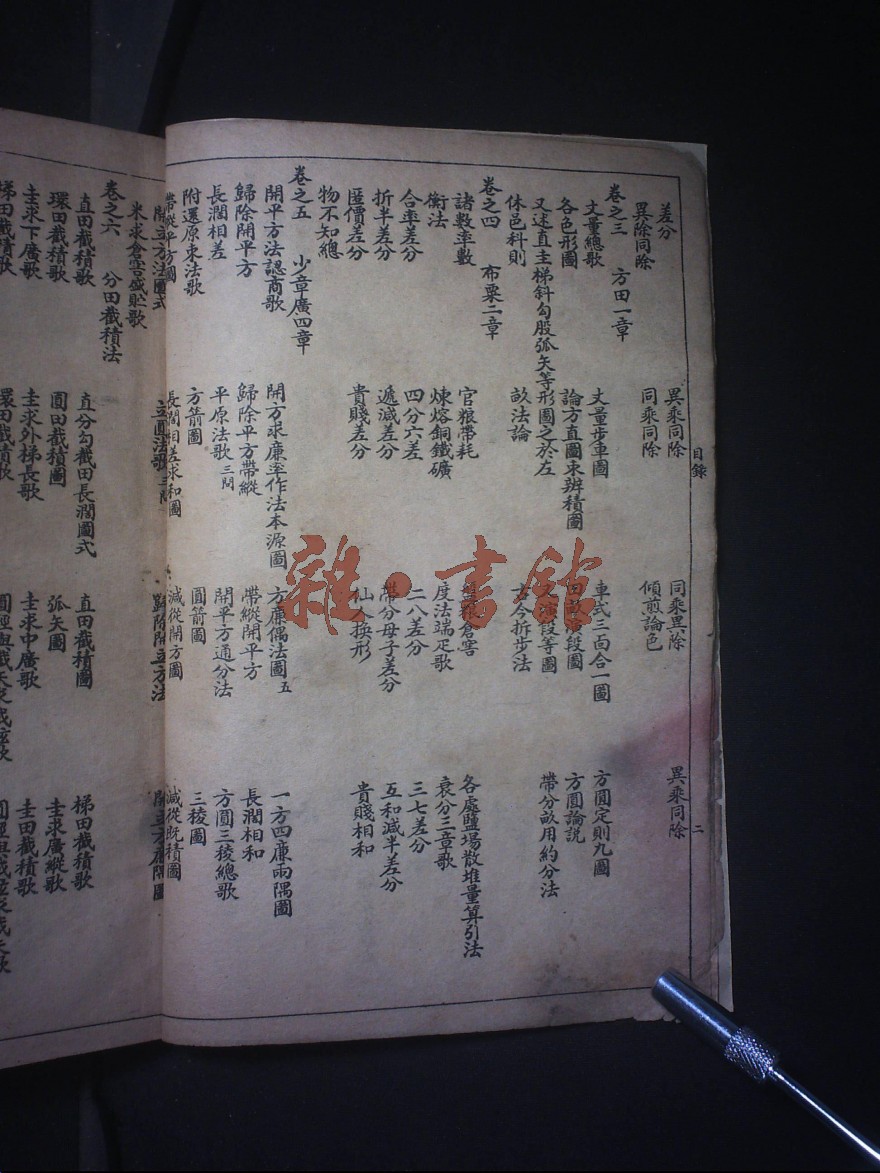 差分
異除同除 異乘同除 同乘異除 異乘同除
同乘同除 傾煎論色
卷之三 方田一章
丈量總歌 丈量步車圖 車式三面合一圖 方圓定則九圖
各色形圖 論方直圖束辨積圖 田畝演段圖 方圓論説
又述直圭梯斜勾股弧矢等形圖之於左 又演段等圖 帶分畝用約分法
休邑科則 畝法論 古今折步法
卷之四 布粟二章
諸數率數 官粮帶耗 盤粮倉窖 各處鹽場散堆量算引法
衡法 煉熔銅鐵礦 度法端疋歌 衰分三章歌
合率差分 四分六差 二八差分 三七差分
折半差分 遞減差分 帶分母子差分 互和減半差分
匿價差分 貴賤差分 仙人換形 貴賤相和
物不知總
卷之五 少章廣四章
開平方法認商歌 開方求廉率作法本源圖 方廉偶法圖五 一方四廉兩隅圖
歸除開平方 歸除平方帶縱 帶縱開平方 長濶相和
長濶相差 平原法歌三問 開平方通分法 方圓三稜總歌
附還原束法歌 方箭圖 圓箭圖 三稜圖
帶縱平方圖 長濶相差求和圖 減從開方圖 減從既積圖
開立方法圖式 立圓法歌三問 歸除開立方法 開立方廉隅圖
米求倉窖盛貯歌
卷之六 分田截積法
直田截積歌 直分勾截田長濶圖式 直田截積圖 梯田截積歌
環田截積歌 圓田截積圖 弧矢圖 圭求廣縱歌
圭求下廣歌 圭求外梯長歌 圭求中廣歌 圭田截積歌
梯田截積歌 環田截積歌
目錄
二
雜·書館